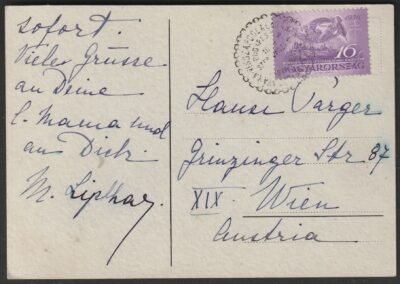 sofort.
Viele Grüsse
an Deine
l. Mama und
an Dich
M. Liphay
16
MAGYARORSZÁG
Hansi Parger
Grinzinger Str 87
XIX. Wien
Austria